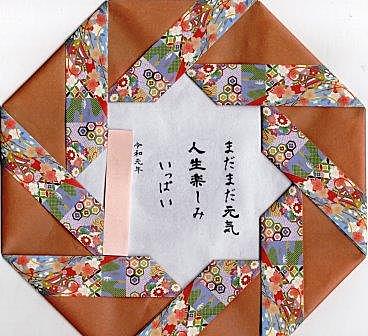 まだまだ元気
人生楽しみ
いっぱい
令和元年